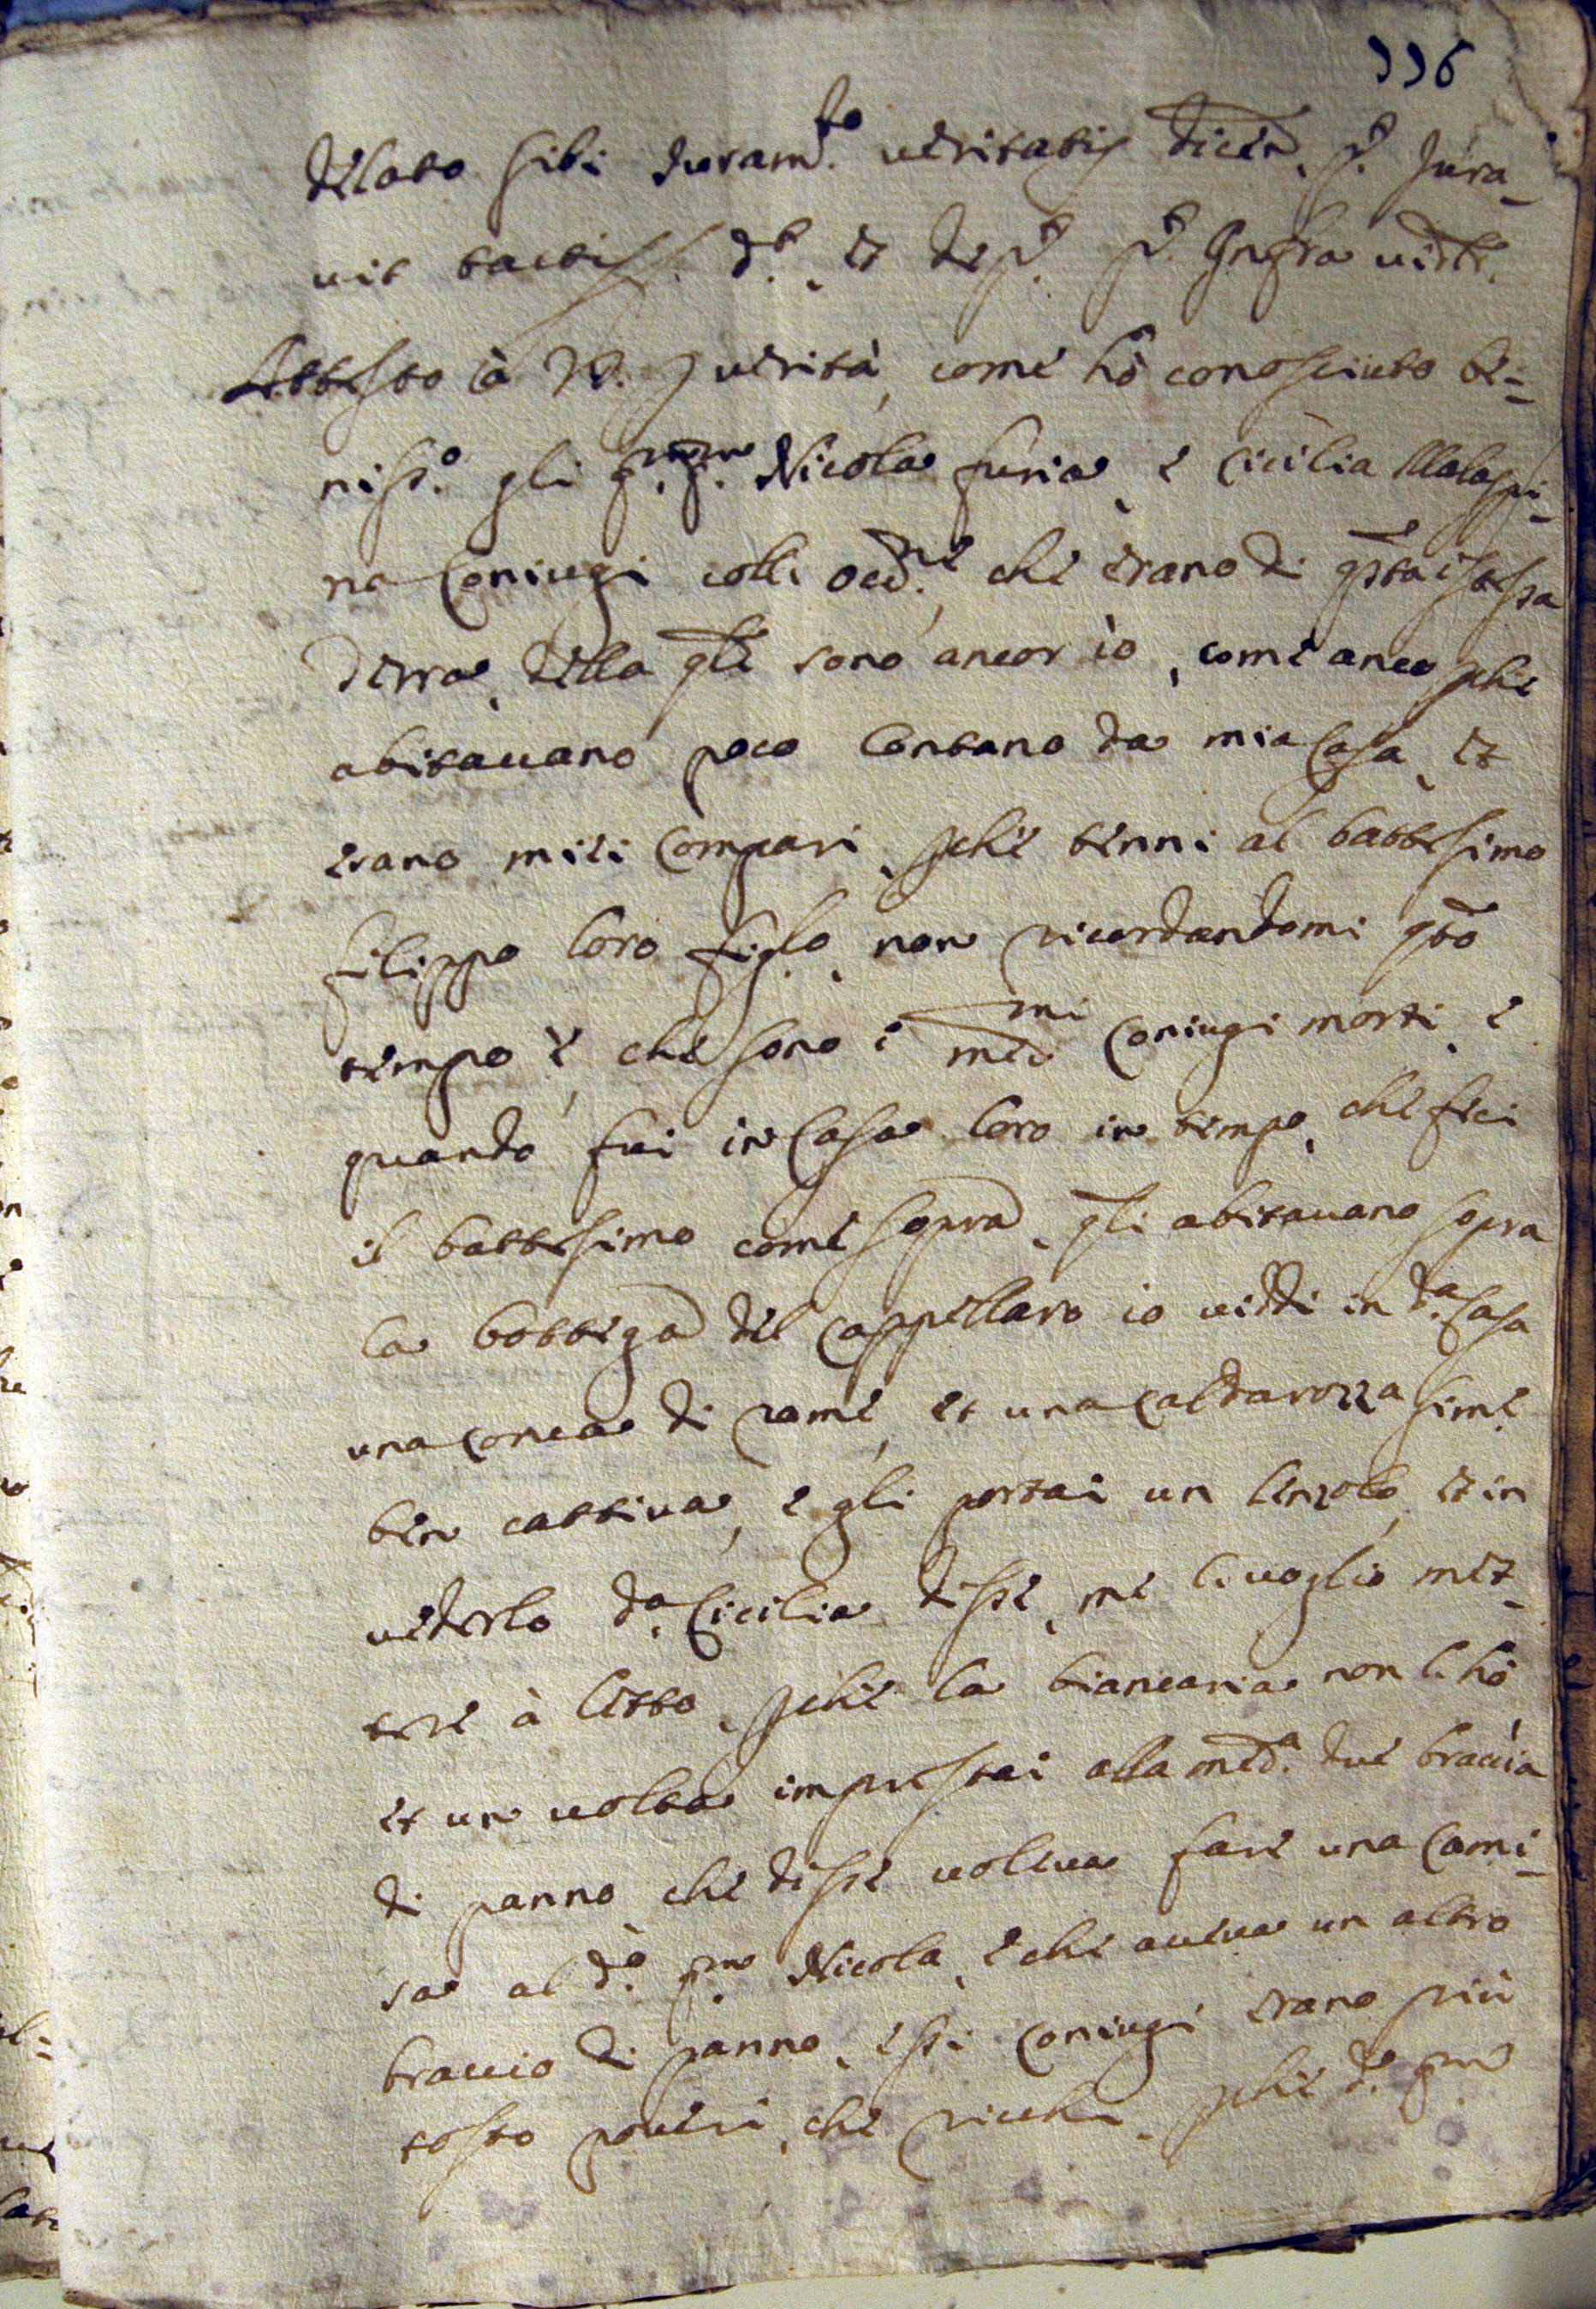 336
delato sibi juram.to veritatis dicen. p.t jura-
vit tactis s. d.t, et dep.t p.t Infra vidt.
Attesto à V.S. p verità, come hò conosciuto be-
niss.o gli q.q.m Nicola furia, e Cicilia Malaspi-
na Coniugi colli occ.ne, che erano di q̃sta istessa
Terra, della q̃le sono ancor iò, come anco, pche
abitavano poco lontano da mia Casa, et
erano miei Compari, pche tenni al battesimo
filippo loro figlo, non ricordandomi q̃to
tempo è, che sono i medmi Coniugi morti, e
quando fui in Casa loro in tempo, che feci
il battesimo come sopra, q̃li abitavano sopra
la bottega del Cappellaro io viddi in d.a Casa
una conca di rame, et una Caldarozza sime
ben cattiva, e gli portai un linzolo, et in
vederlo d.a Cicilia disse, me li voglio met-
tere à letto, pche la biancaria non l'hò
et un volta imprestai alla med.a due braccia
di panno che disse voleva fare una Cami-
sa al d.o q.m Nicola, e che aveva un altro
braccio di panno, essi Coniugi erano più
tosto poveri, che ricchi, pche d.o q.m